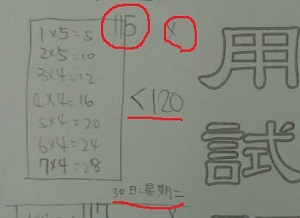 1×5=5
2×5=10
3×4=12
4×4=16
5×4=20
6×4=24
7×4=28
115 ×
<120
30日=星期二
用
試